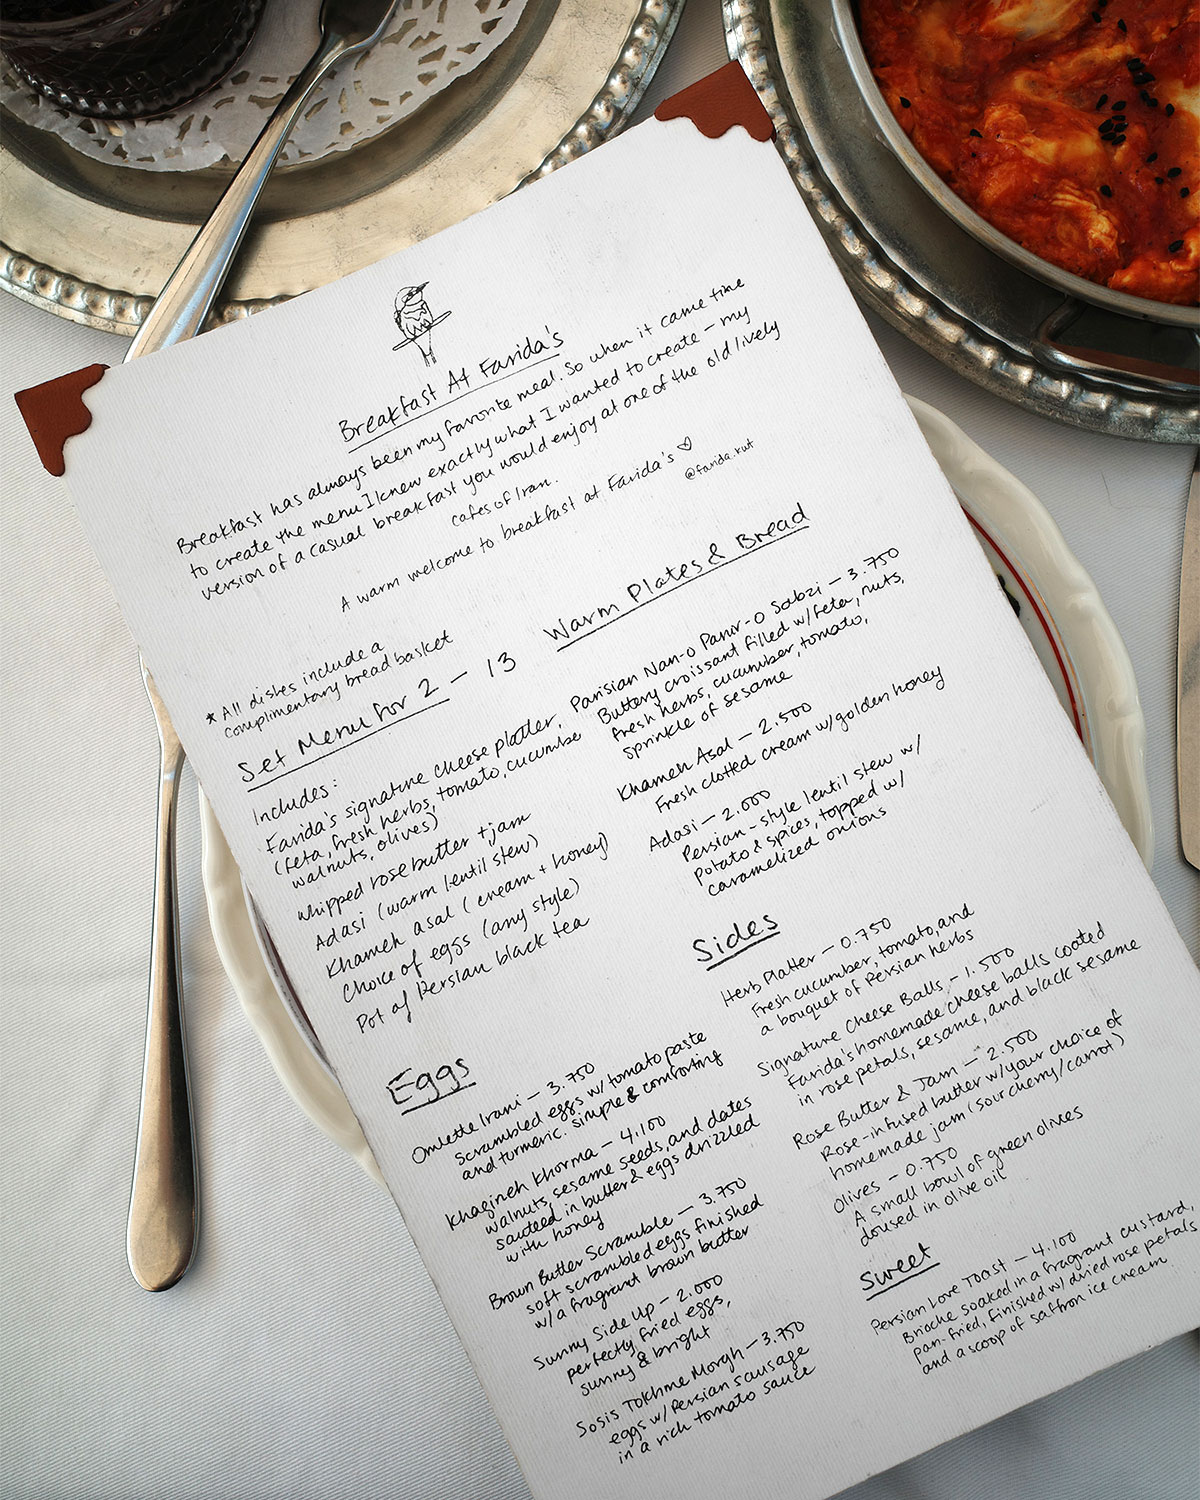 Breakfast At Farida's
Breakfast has always been my favorite meal. So when it came time
to create the menu I knew exactly what I wanted to create – my
version of a casual breakfast you would enjoy at one of the old lively
cafes of Iran.
A warm welcome to breakfast at Farida's ♡
@farida.kwt
* All dishes include a
complimentary bread basket
Set Menu for 2 – 13
Includes:
Farida's signature cheese platter,
(feta, fresh herbs, tomato, cucumber
walnuts, olives)
whipped rose butter + jam
Adasi (warm lentil stew)
Khameh asal (cream + honey)
Choice of eggs (any style)
Pot of Persian black tea
Eggs
Omlette Irani – 3.750
Scrambled eggs w/ tomato paste
and turmeric. Simple & comforting
Khagineh Khorma – 4.100
walnuts, sesame seeds, and dates
sauteed in butter & eggs drizzled
with honey
Brown Butter Scramble – 3.750
soft scrambled eggs finished
w/ a fragrant brown butter
Sunny Side Up – 2.000
perfectly fried eggs,
sunny & bright
Sosis Tokhme Morgh – 3.750
eggs w/ Persian sausage
in a rich tomato sauce
Warm Plates & Bread
Parisian Nan-o Panir-o Sabzi – 3.750
Buttery croissant filled w/ feta, nuts,
fresh herbs, cucumber, tomato,
sprinkle of sesame
Khameh Asal – 2.500
Fresh clotted cream w/ golden honey
Adasi – 2.000
Persian-style lentil stew w/
potato & spices, topped w/
caramelized onions
Sides
Herb Platter – 0.750
Fresh cucumber, tomato, and
a bouquet of Persian herbs
Signature Cheese Balls – 1.500
Farida's homemade cheese balls coated
in rose petals, sesame, and black sesame
Rose Butter & Jam – 2.500
Rose-infused butter w/ your choice of
homemade jam (sour cherry/carrot)
Olives – 0.750
A small bowl of green olives
doused in olive oil
Sweet
Persian Love Toast – 4.100
Brioche soaked in a fragrant custard,
pan-fried, finished w/ dried rose petals
and a scoop of saffron ice cream